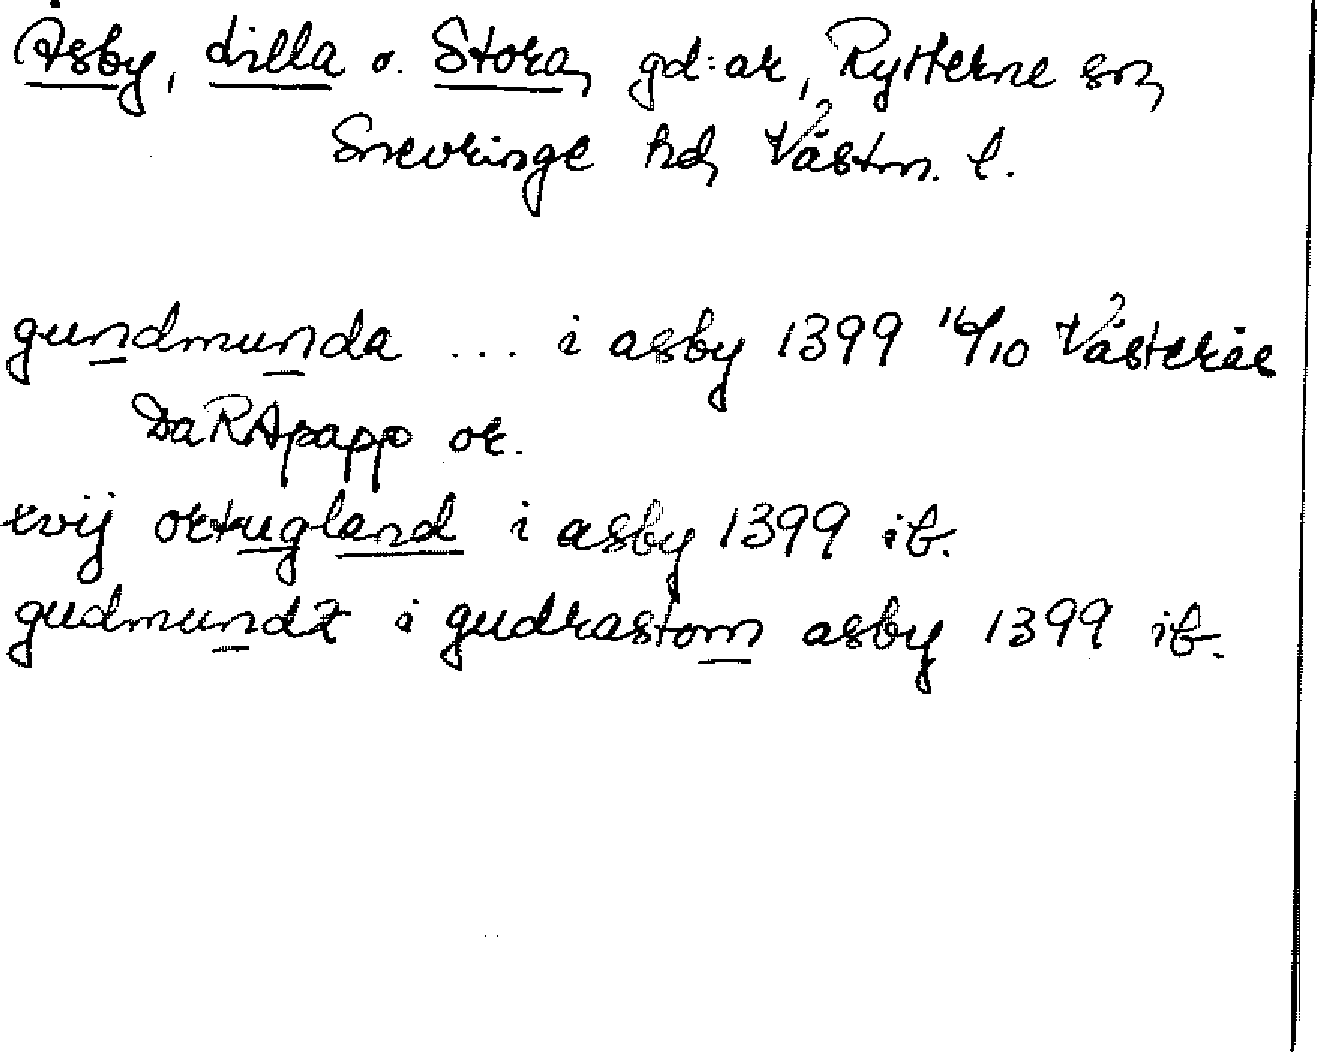 Åsby, Lilla o. Stora, gd:ar, Rytterne sn,
Snevringe hd, Västm. l.
gundmunda ... i asby 1399 16/10 Västerås
DaRApapp or.
xvij ortugland i asby 1399 ib.
gudmundz i gudrastom asby 1399 ib.